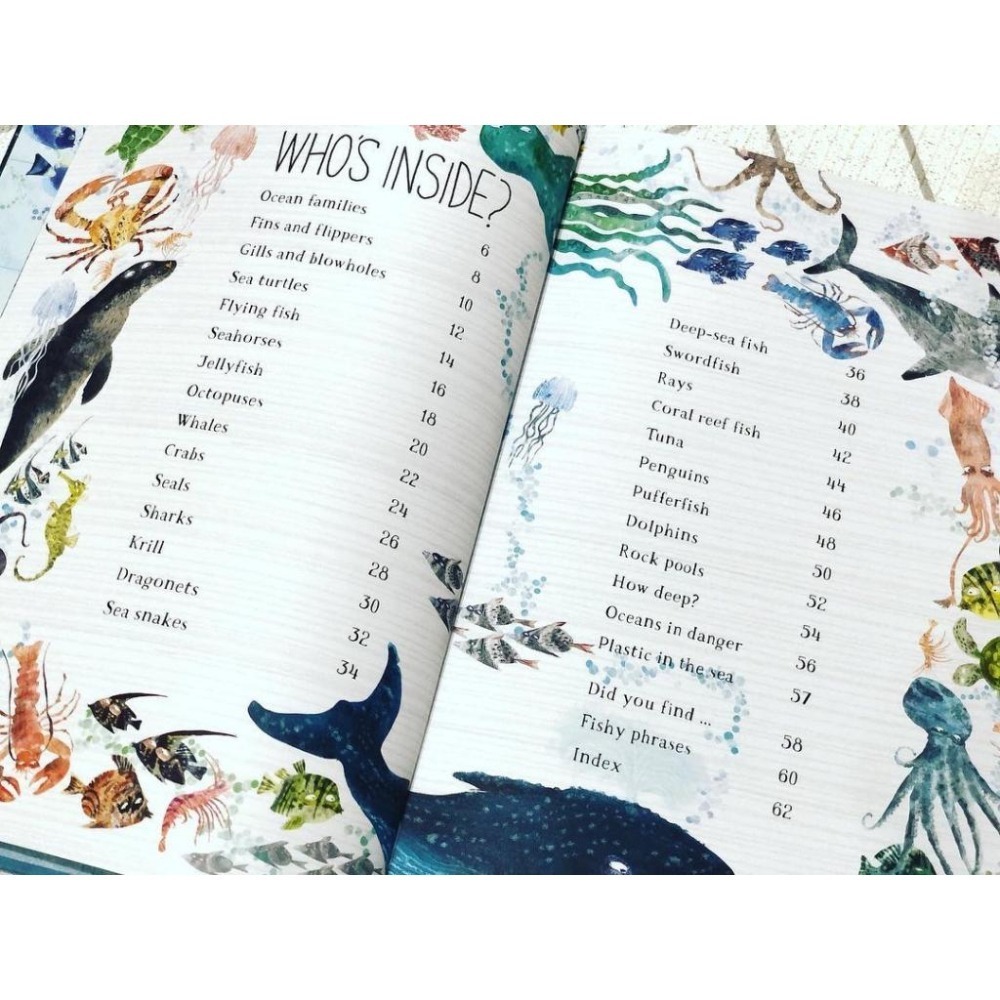 WHO'S INSIDE?
Ocean families 6
Fins and flippers 8
Gills and blowholes 10
Sea turtles 12
Flying fish 14
Seahorses 16
Jellyfish 18
Octopuses 20
Whales 22
Crabs 24
Seals 26
Sharks 28
Krill 30
Dragonets 32
Sea snakes 34
Deep-sea fish 36
Swordfish 38
Rays 40
Coral reef fish 42
Tuna 44
Penguins 46
Pufferfish 48
Dolphins 50
Rock pools 52
How deep? 54
Oceans in danger 56
Plastic in the sea 57
Did you find ... 58
Fishy phrases 60
Index 62